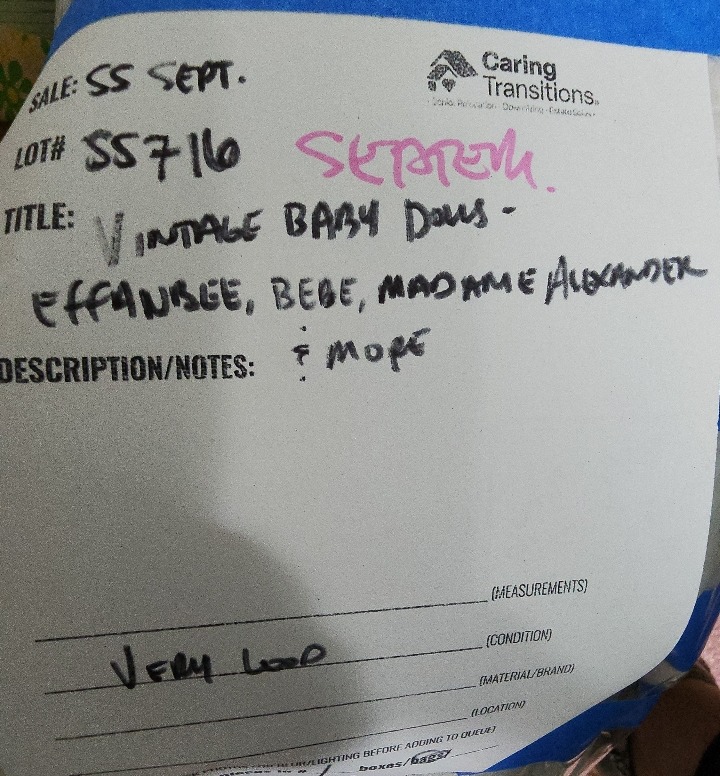 SALE: SS SEPT.
Caring
Transitions
LOT# SS716 SEPTEM.
TITLE: VINTAGE BABY DOLLS -
EFFANBEE, BEBE, MADAME ALEXANDER
DESCRIPTION/NOTES: & MORE
(MEASUREMENTS)
VERY GOOD (CONDITION)
(MATERIAL/BRAND)
(LOCATION)
LIGHTING BEFORE ADDING TO QUEUE)
boxes/bags/